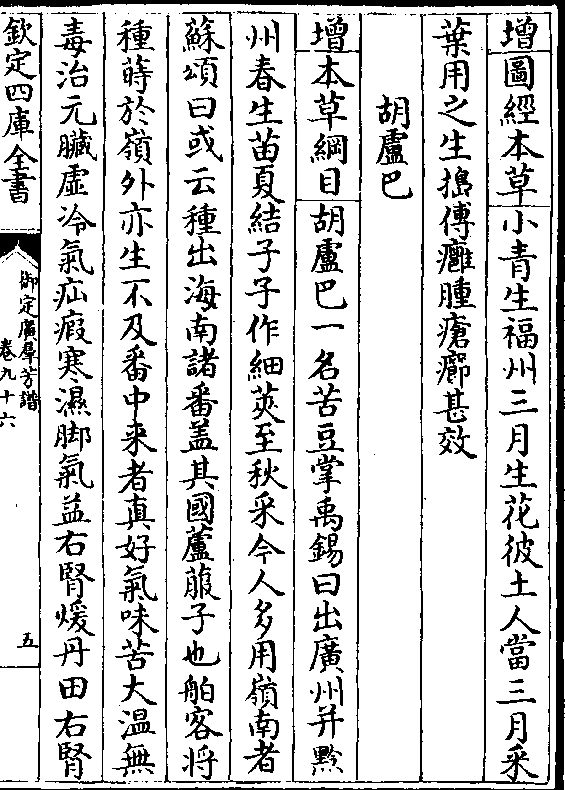 增圖經本草小青生福州三月生花彼土人當三月采
葉用之生搗傅癰腫瘡癤甚效
胡盧巴
增本草綱目胡盧巴一名苦豆掌禹錫曰出廣州并黔
州春生苗夏結子子作細莢至秋采今人多用嶺南者
蘇頌曰或云種出海南諸番盖其國蘆菔子也舶客將
種蒔於嶺外亦生不及番中来者真好氣味苦大温無
毒治元臟虛冷氣疝瘕寒濕脚氣益右腎煖丹田右腎
欽定四庫全書
御定廣羣芳譜
卷九十六
五